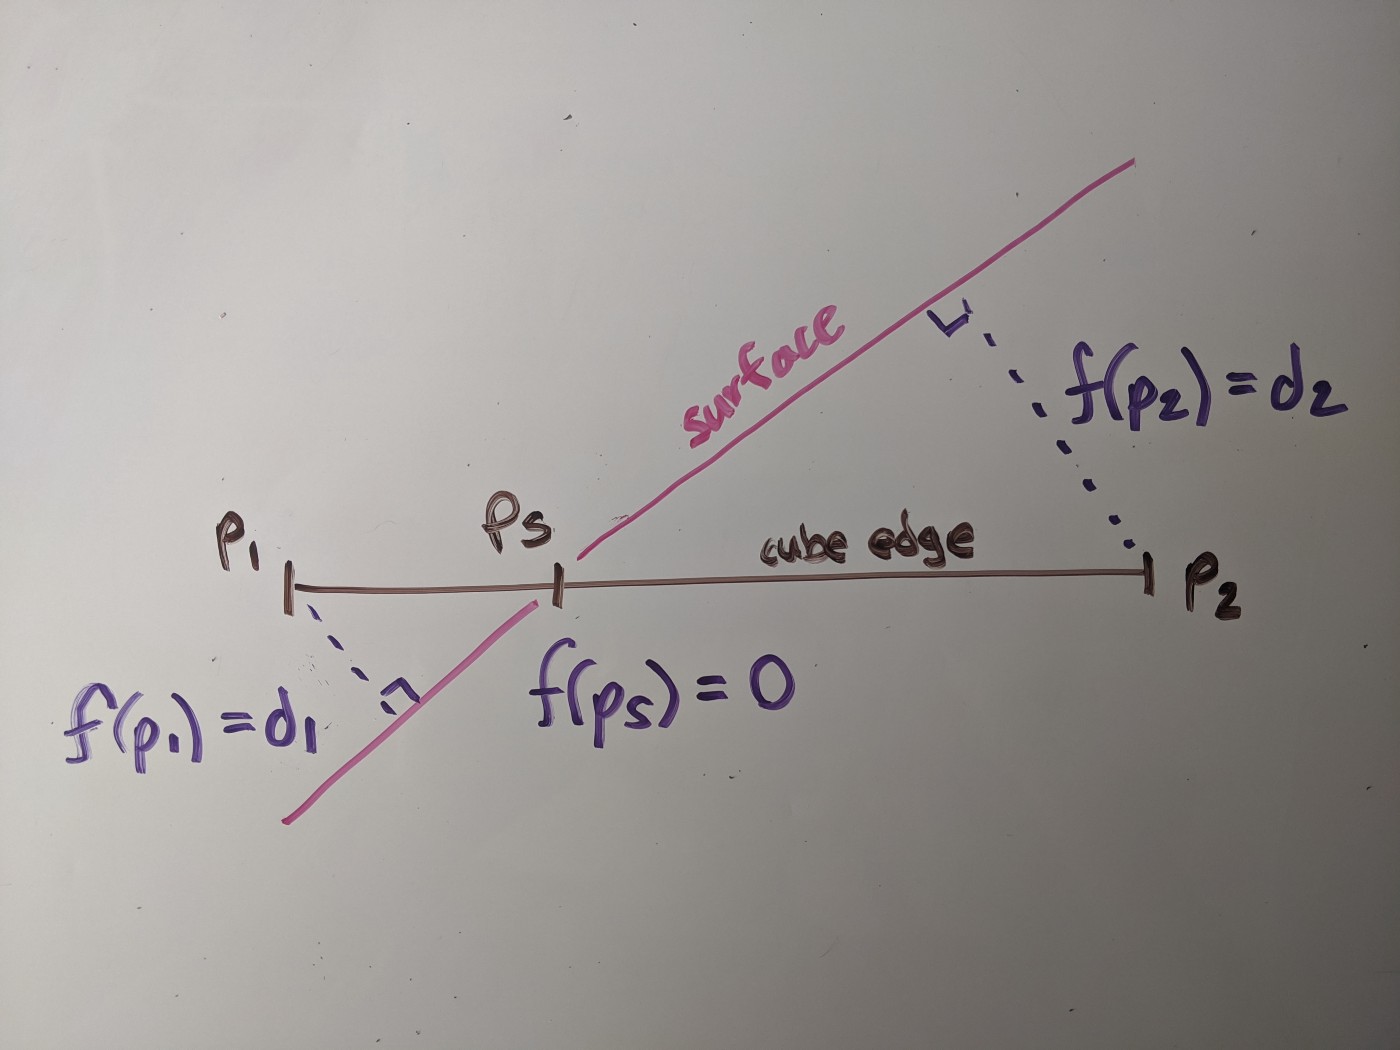 surface
f(p₂) = d₂
p₁
ps
cube edge
p₂
f(p₁) = d₁
f(ps) = 0